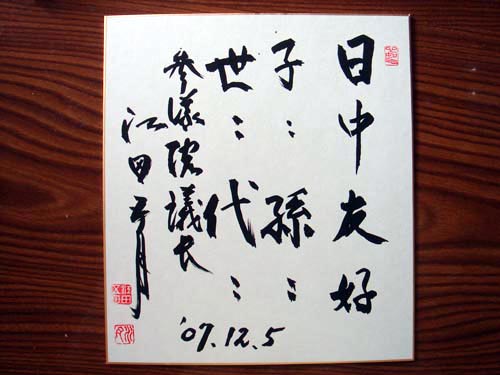 日中友好
子〻孫〻
世〻代〻
参議院議長
江田五月
'07.12.5